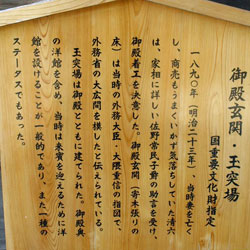 御殿玄関・玉突場
国重要文化財指定
一八九〇年（明治二十三年）、当時妻を亡く
し、商売もうまくいかず気落ちしていた清六
は、家相に詳しい佐野常民子爵の助言を受け、
御殿着工を決意した。御殿玄関（寄木張りの
床）は当時の外務大臣・大隈重信の指図で、
外務省の大広間を模したと伝えられている。
玉突場は御殿とともに建てられた。御殿奥
の洋館を含め、当時は来賓を迎えるために洋
館を設けることが一般的であり、また一種の
ステータスでもあった。